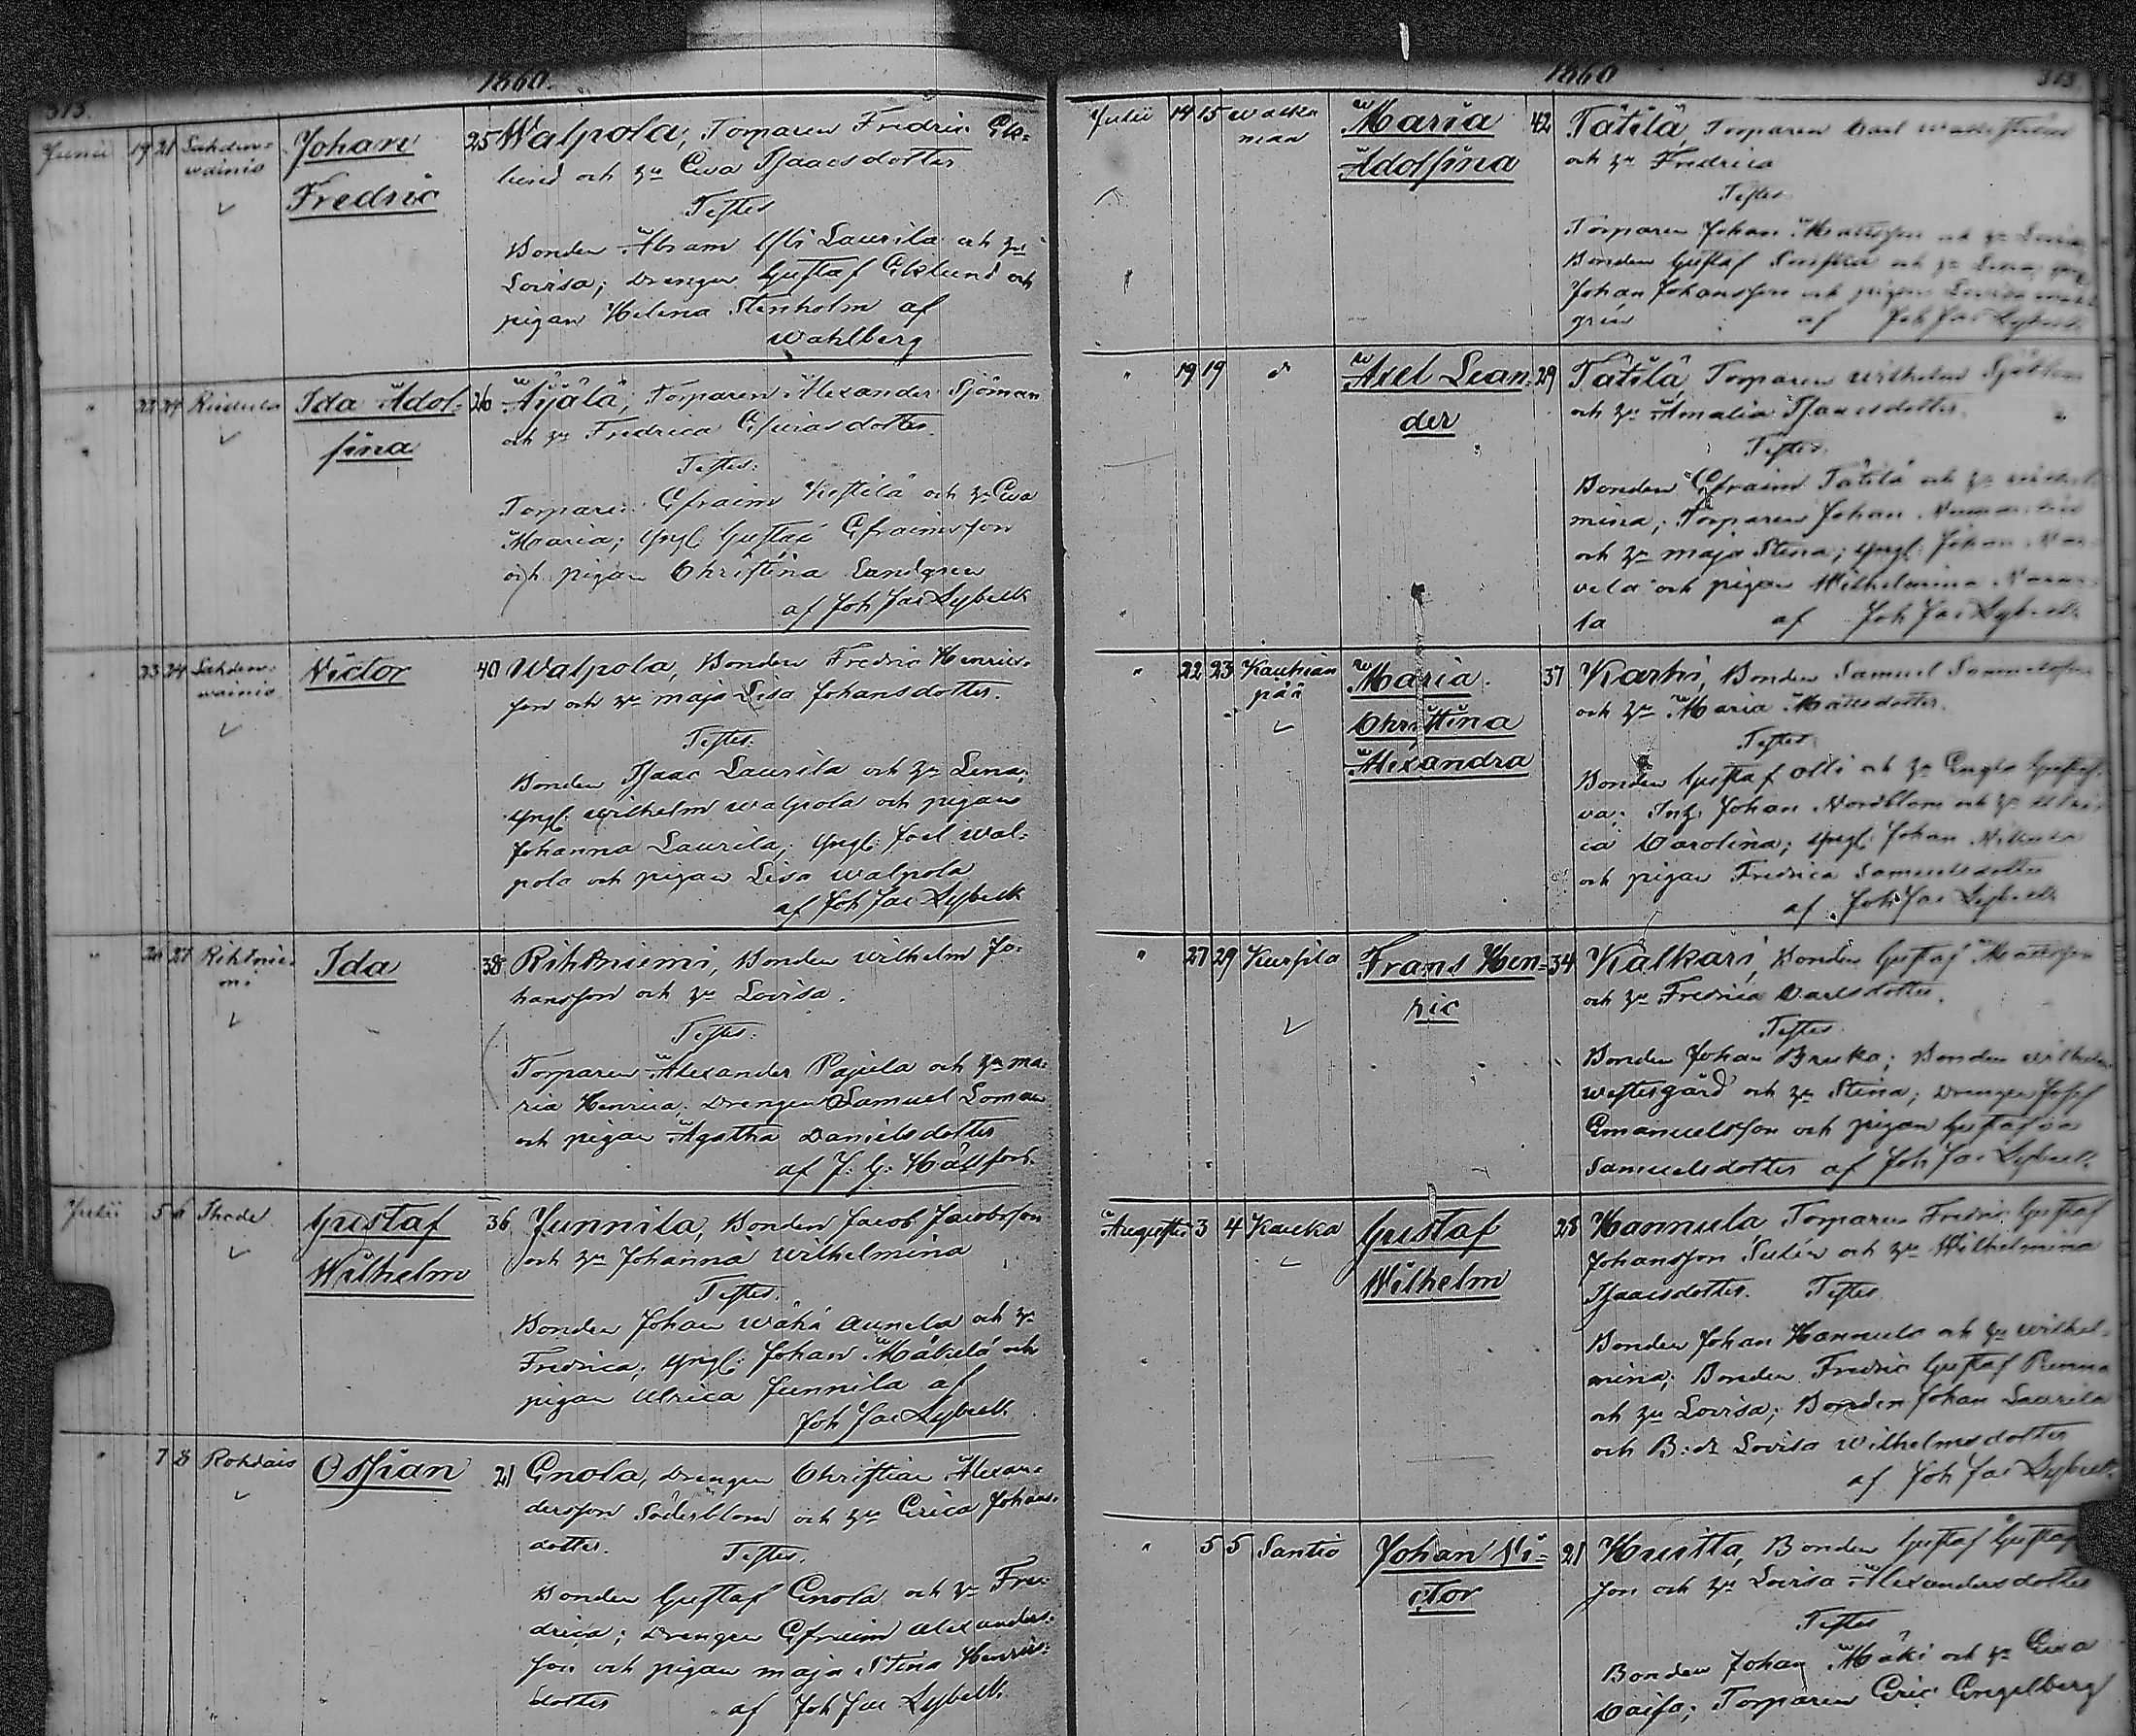 1860.
373.
Junii 19 21 Lahden= Johan 25 Walpola, Torparen Fredric Ek=
wainio Fredric lund och hu Ewa Isaacsdotter
Testes
Bonden Abram Yli Laurila och hu
Lovisa; Drengen Gustaf Eklund och
pigan Helena Stenholm af
Wahlberg
" Ida Adol= 26 Äyälä, Torparen Alexander Sjöman
fina och hu Fredrica Esaiasdotter.
Testes:
Torparen Efraim Kestilä och hu Ewa
Maria; Yngl. Gustaf Efraimsson
och pigan Christina Landgren
af Joh Jac Lybeck
" 23 24 Lahden= Victor 40 Walpola, Bonden Fredric Henrics=
wainio son och hu Maja Lisa Johansdotter.
Testes.
Bonden Isaac Laurila och hu Lena;
Yngl. Wilhelm Walpola och pigan
Johanna Laurila; Yngl. Joel Wal=
pola och pigan Lisa Walpola
af Joh Jac Lybeck
" 26 27 Rihtnie= Ida 38 Rihtniemi, Bonden Wilhelm Jo=
mi hansson och hu Lovisa.
Testes.
Torparen Alexander Pajula och hu Ma=
ria Henrica; Drengen Samuel Loman
och pigan Agatha Danielsdotter
af J. G. Hällfors.
Julii 5 6 Ihode Gustaf 36 Junnila, Bonden Jacob Jacobsson
Wilhelm och hu Johanna Wilhelmina
Testes.
Bonden Johan Wähä Aunela och hu
Fredrica; Yngl. Johan Mäkelä och
pigan Ulrica Junnila af
Joh Jac Lybeck
" 7 8 Rohdais Ossian 21 Enola, Drengen Christian Alexan=
dersson Söderblom och hu Erica Johans=
dotter. Testes.
Bonden Gustaf Enola och hu Fre=
drica; Drengen Efraim Alexanders=
son och pigan Maja Stina Henrics=
dotter af Joh Jac Lybeck.
1860
373.
Julii 14 15 Walka Maria 42 Tätilä, Torparen Carl
maa Adolfina och hu Fredrica
Testes
Torparen Johan Mattsson och hu Lovisa
Bonden Gustaf och hu Lena;
Johan Johansson och pigan Lovisa
gren af Joh Jac Lybeck
" 19 19 d Axel Lean= 29 Tätilä, Torparen Wilhelm Sjöblom
der och hu Amalia Isaacsdotter.
Testes.
Bonden Efraim Tätilä och hu Wilhel
mina; Torparen Johan
och hu Maja Stina; Yngl. Johan Nar=
vela och pigan Wilhelmina
la af Joh Jac Lybeck
" 22 23 Kauhian Maria 37 Karhi, Bonden Samuel Samuelsson
pää Christina och hu Maria Mattsdotter.
Alexandra Testes
Bonden Gustaf Olli och hu Engla Gustaf=
va; Inh. Johan Nordblom och hu Ulri=
ca Carolina; Yngl. Johan
och pigan Fredrica Samuelsdotter
af Joh Jac Lybeck
" 27 29 Kursila Frans Hen= 34 Kälkäri, Bonden Gustaf Mattsson
ric och hu Fredrica Carlsdotter.
Testes
Bonden Johan Bruka; Bonden Wilhelm
Westergård och hu Stina; Drengen Josef
Emanuelsson och pigan Gustafva
Samuelsdotter af Joh Jac Lybeck
Augusti 3 4 Kauka Gustaf 28 Hannula Torparen Fredric Gustaf
Wilhelm Johansson Sulin och hu Wilhelmina
Isaacsdotter. Testes.
Bonden Johan Hannula och hu Wilhel=
mina; Bonden Fredric Gustaf Runna
och hu Lovisa; Bonden Johan Laurila
och B:dr Lovisa Wilhelmsdotter
af Joh Jac Lybeck
" 5 5 Santio Johan Vi= 21 Huitta, Bonden Gustaf Gustaf
ctor son och hu Lovisa Alexandersdotter
Testes
Bonden Johan Mäki och hu Ewa
Caisa; Torparen Eric Engelberg